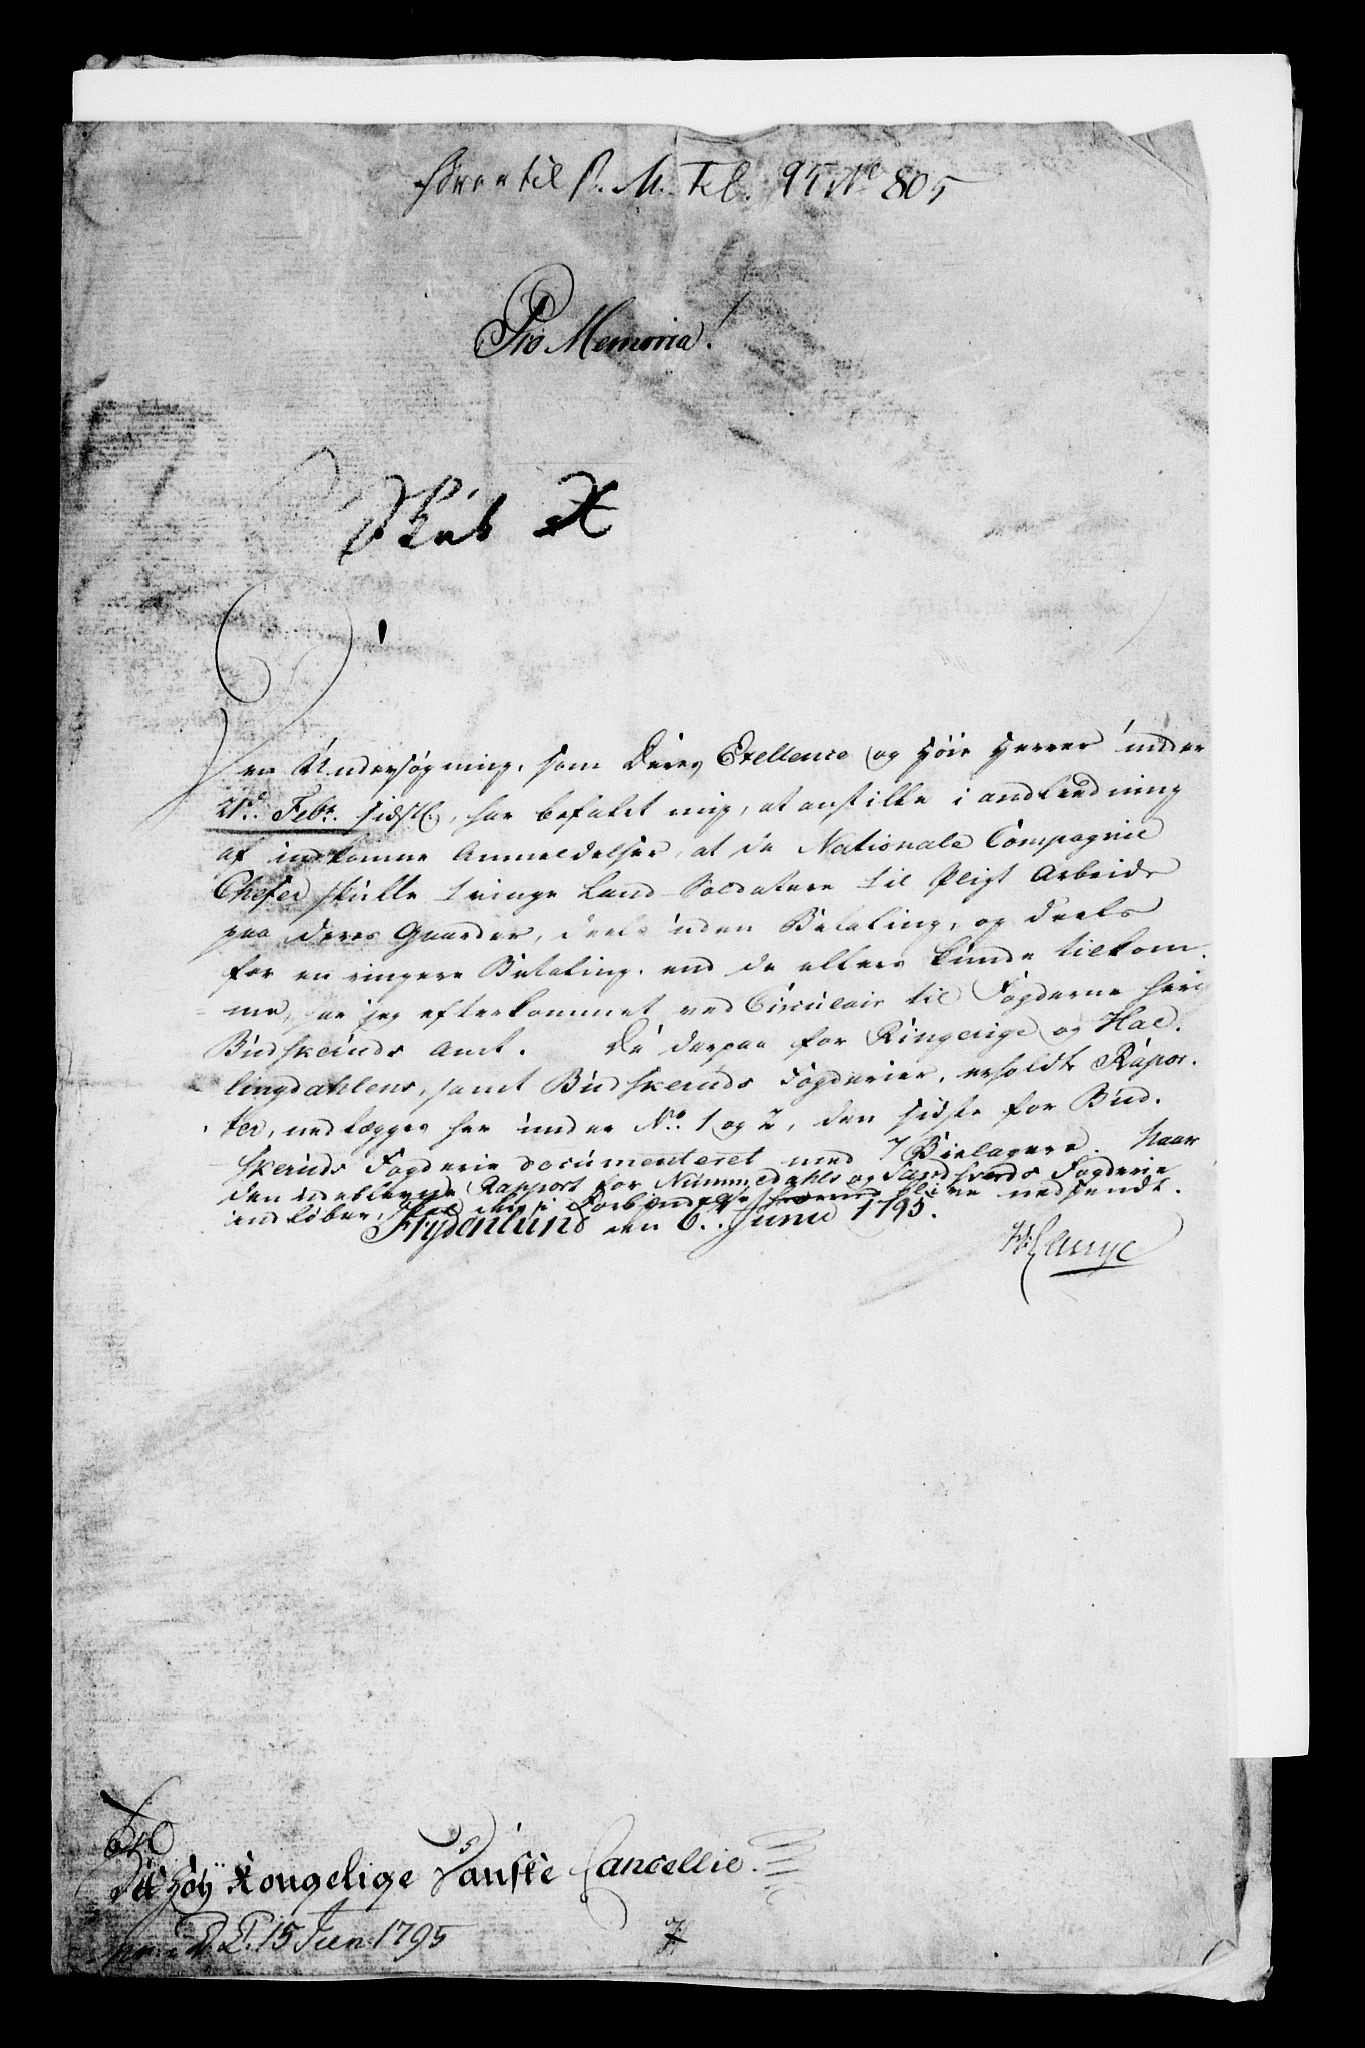 Svar til P. M. Tel. 95 No 805
Pro Memoria!
Skab X
Den Undersøgning, som Deres Exellence og Høie Herrer under
21de Febr. sidstl., har befalet mig, at anstille i andledning
af indkomne Anmeldelser, at de Nationale Compagnie
Chefer skulle tvinge Land-Soldatere til Pligt Arbeide
paa deres Gaarder, deels uden Betaling, og deels
for en ringere Betaling, end de ellers kunde tilkom-
me, har jeg efterkommet ved Circulair til Fogderne her i
Budskeruds Amt. De derpaa for Ringerige og Hal-
lingdahlens, samt Budskeruds Fogderier, erholdte Rapor-
ter, nedlægges her under No. 1 og 2, den sidste for Bud-
skeruds Fogderie documenteret med 7 Bielagere. Naar
den udeblevne Rapport for Nummedahls og Sandsværds Fogderie
indløber, skal den i Forbindelse hermed blive nedsendt.
Frydenlund den 6te Junii 1795.
Til
Det Høy Kongelige Danske Cancellie.
15 Jun 1795